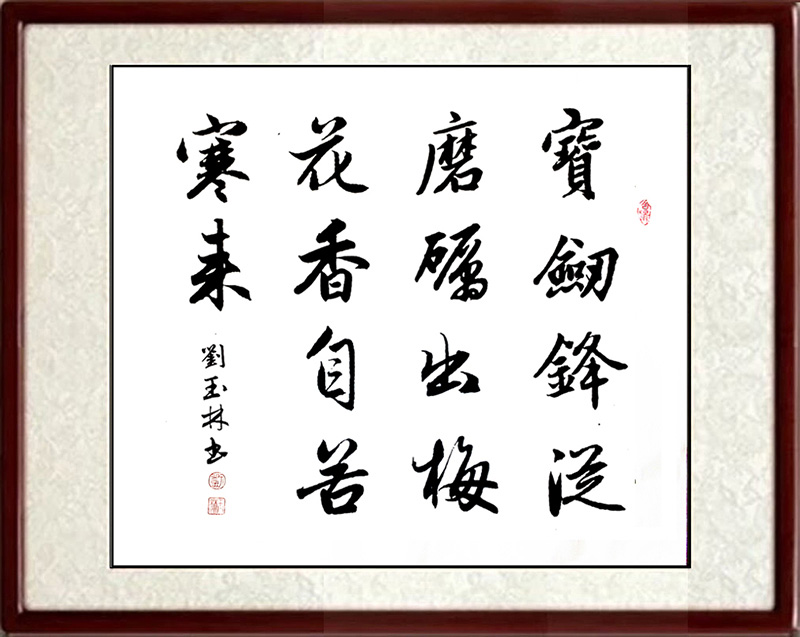 寶劒鋒從
磨礪出梅
花香自苦
寒来
劉玉林书